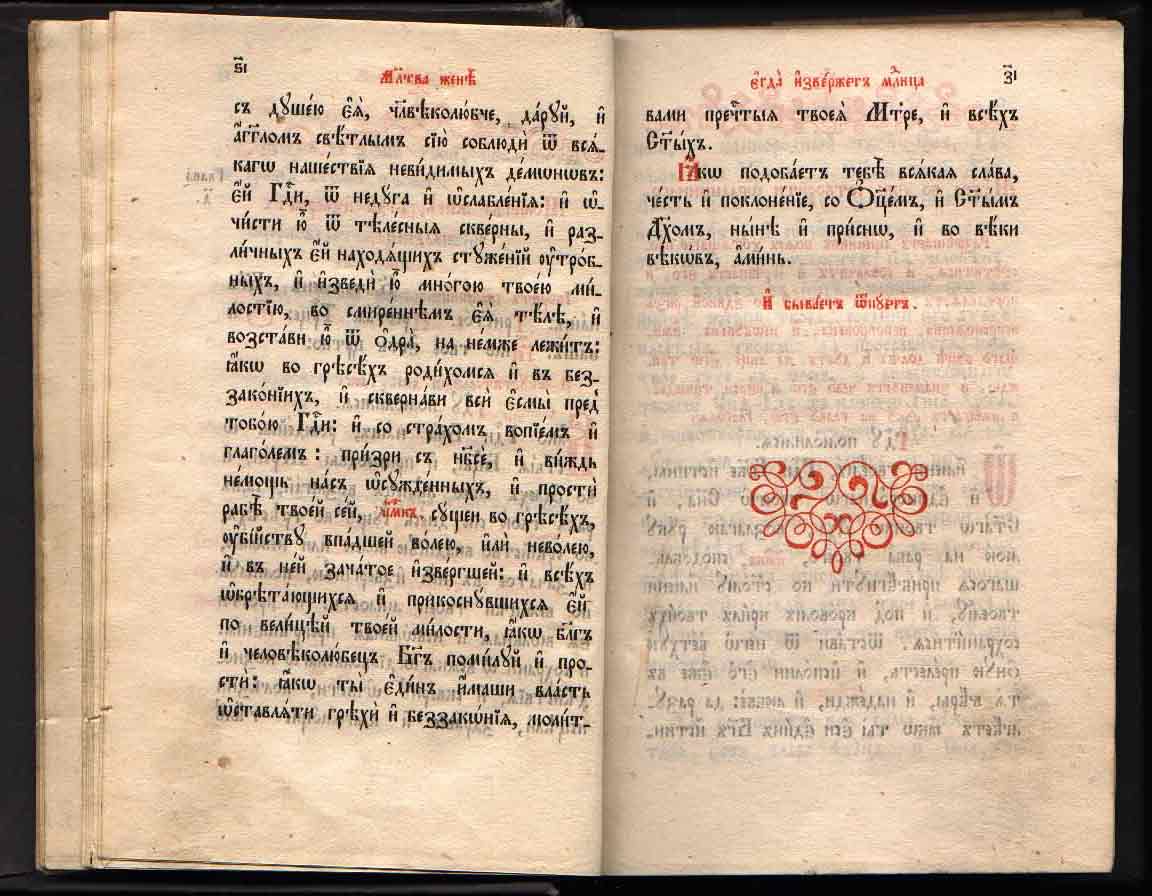 ѕ҃і
Мл҃тва женѣ̀
съ душе́ю є҆ѧ̀, чл҃вѣколю́бче, да́руй, и҆
а҆́гг҃ломъ свѣ́тлымъ сїю̀ соблюдѝ ѿ всѧ́-
кагѡ наше́ствїѧ неви́димыхъ де́мѡнѡвъ:
є҆́й Гдⷭ҇и, ѿ неду́га и҆ ѡ҆слабле́нїѧ: и҆ ѡ҆-
чи́сти ю҆̀ ѿ тѣле́сныѧ скве́рны, и҆ раз-
ли́чныхъ є҆́й находѧ́щихъ стуже́нїй ᲂу҆тро́б-
ныхъ, и҆ и҆зведѝ ю҆̀ мно́гою твое́ю ми́-
лостїю, во смире́ннѣмъ є҆ѧ̀ тѣ́лѣ, и҆
возста́ви ю҆̀ ѿ ѻ҆дра̀, на не́мже лежи́тъ:
ꙗ҆́кѡ во грѣсѣ́хъ роди́хомсѧ и҆ въ без-
зако́нїихъ, и҆ скверна́ви всѝ є҆смы̀ пред̾
тобо́ю Гдⷭ҇и: и҆ со стра́хомъ вопїе́мъ и҆
глаго́лемъ: при́зри съ нб҃сѐ, и҆ ви́ждь
не́мощь на́съ ѡ҆сужде́нныхъ, и҆ простѝ
рабѣ̀ твое́й се́й, и҆́мкⷬ. сущей во грѣсѣ́хъ,
ᲂу҆бі́йству впа́дшей во́лею, и҆лѝ нево́лею,
и҆ въ не́й, зача́тое и҆зве́ргшей: и҆ всѣ́хъ
ѡ҆брѣта́ющихсѧ и҆ прикоснувшихсѧ є҆́й
по вели́цѣй твое́й ми́лости, ꙗ҆́кѡ бл҃гъ
и҆ человѣколю́бецъ Бг҃ъ поми́луй и҆ про-
сти: ꙗ҆́кѡ ты̀ є҆ди́нъ и҆́маши вла́сть
ѡ҆ставлѧ́ти грѣхѝ и҆ беззакѡ́нїѧ, моли́т-
з҃і
є҆гда̀ и҆зве́ржетъ мл҃нца
вами пречⷭ҇тыѧ твоеѧ̀ Мт҃ре, и҆ всѣ́хъ
Ст҃ы́хъ.
Ꙗ҆́кѡ подоба́етъ тебѣ̀ всѧ́каѧ сла́ва,
че́сть и҆ поклоне́нїе, со Ѻ҆ц҃е́мъ, и҆ Ст҃ы́мъ
Дх҃омъ, ны́нѣ и҆ при́снѡ, и҆ во вѣ́ки
вѣкѡ́въ, а҆ми́нь.
И҆ быва́етъ ѿпустъ.